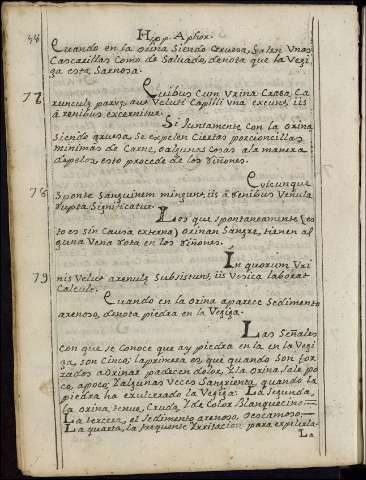 48
Hypp. Aphor.
Cuando en la orina siendo Gruesa, salen Unas
Cascarillas Como de Salvado, denota que la Vegi-
ga esta Sarnosa.
Quibus Cum Vrina Crasa Ca
77
runculæ parvæ aut Veluti Capilli una exeunt, iis
à renibus excernitur.
Si Juntamente Con la Orina
Siendo gruesa, Se expelen Ciertas porcioncillas
minimas de Carne, o algunas Cosas a la manera
de pelos, esto procede de los riñones.
Cuicunque
78
Sponte Sanguinem mingunt, iis à renibus Venulæ
rupta Significatur.
Los que spontaneamente (es
to es sin Causa externa) orinan Sangre, tienen al
guna Vena rota en los riñones.
In quorum Vri
79
nis Velut arenulæ Subsistunt, iis Vesica laborat
Calculi.
Cuando en la orina aparece Sedimento
arenoso, denota piedra en la Vegiga.
Las Señales
con que se Conoce que ay piedra en la en la Vegi
ga, son Cinco: la primera es, que quando Son for
zados a Orinar padecen dolor, y la Orina Sale po
co, a poco; y algunas Veces Sangrienta, quando la
piedra ha exulcerado la Vegiga. La Segunda,
la Orina tenue, Cruda, y de Color Blanquecino:
La tercera, el Sedimento arenoso, o escamoso:
La quarta, la frequente Irritacion para expelerla.
La